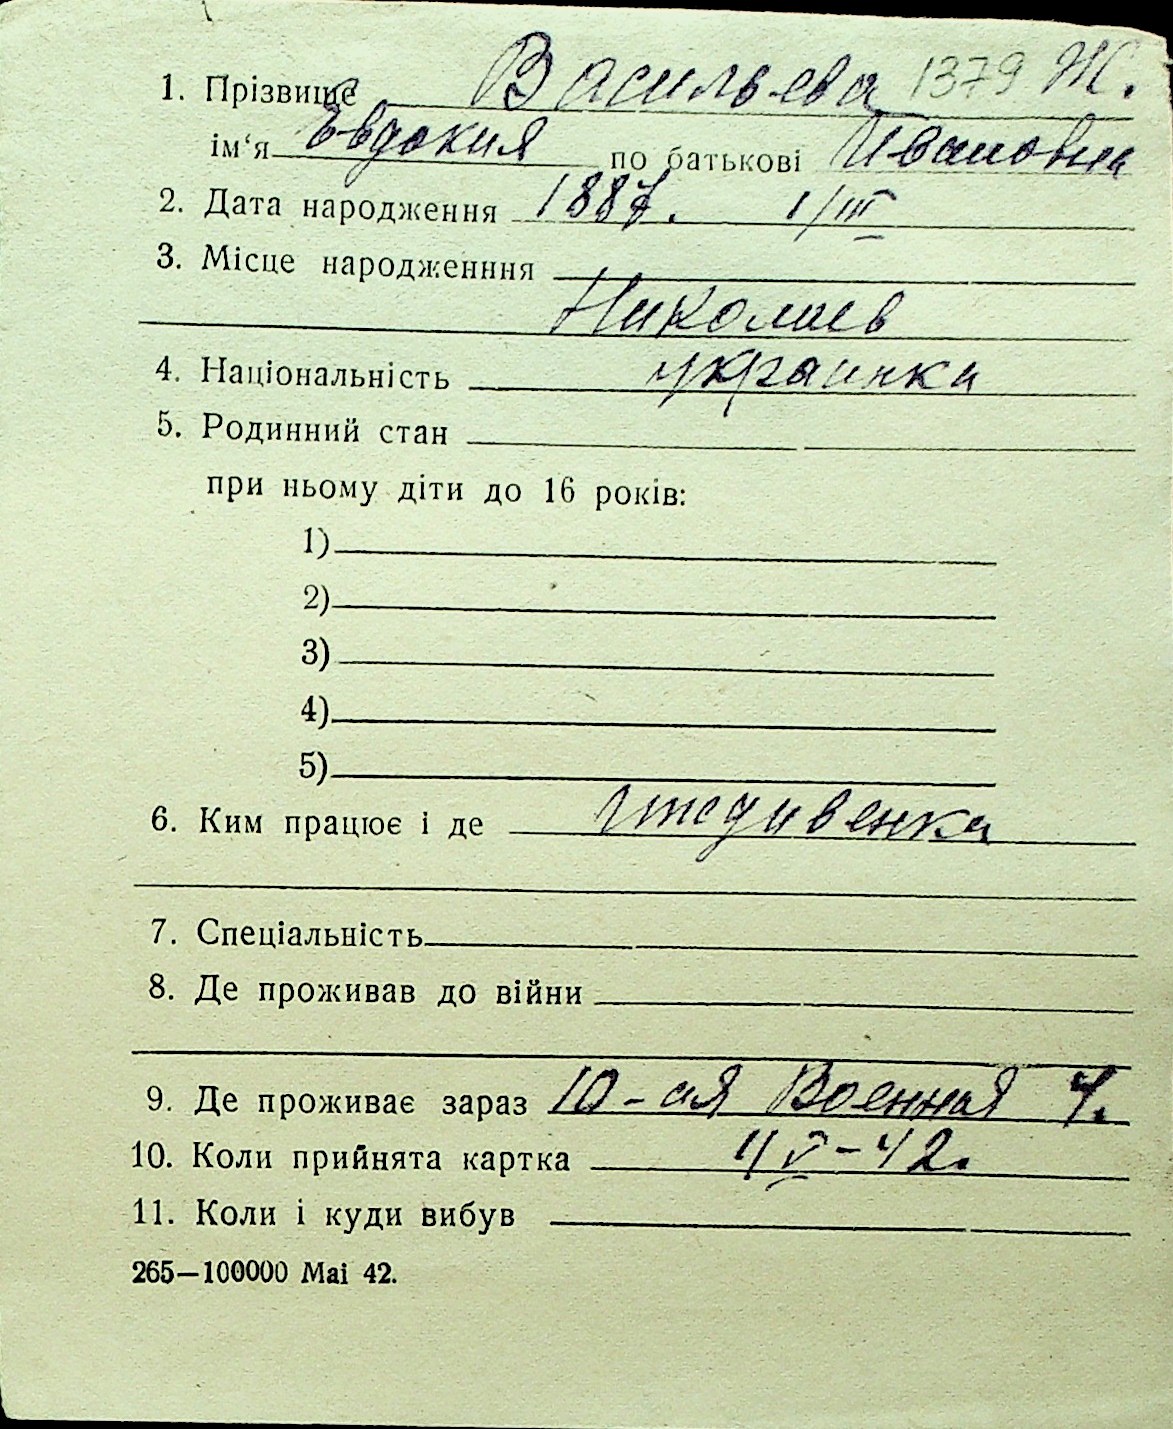 1. Прізвище Васильева 1379 Ж.
ім‘я Евдокия по батькові Ивановна
2. Дата народження 1887. 1/III
3. Місце народженння
Николаев
4. Національність украинка
5. Родинний стан
при ньому діти до 16 років:
1)
2)
3)
4)
5)
6. Ким працює і де иждивенка
7. Спеціальність
8. Де проживав до війни
9. Де проживає зараз 10-ая Военная 4.
10. Коли прийнята картка 4/V-42.
11. Коли і куди вибув
265—100000 Mai 42.